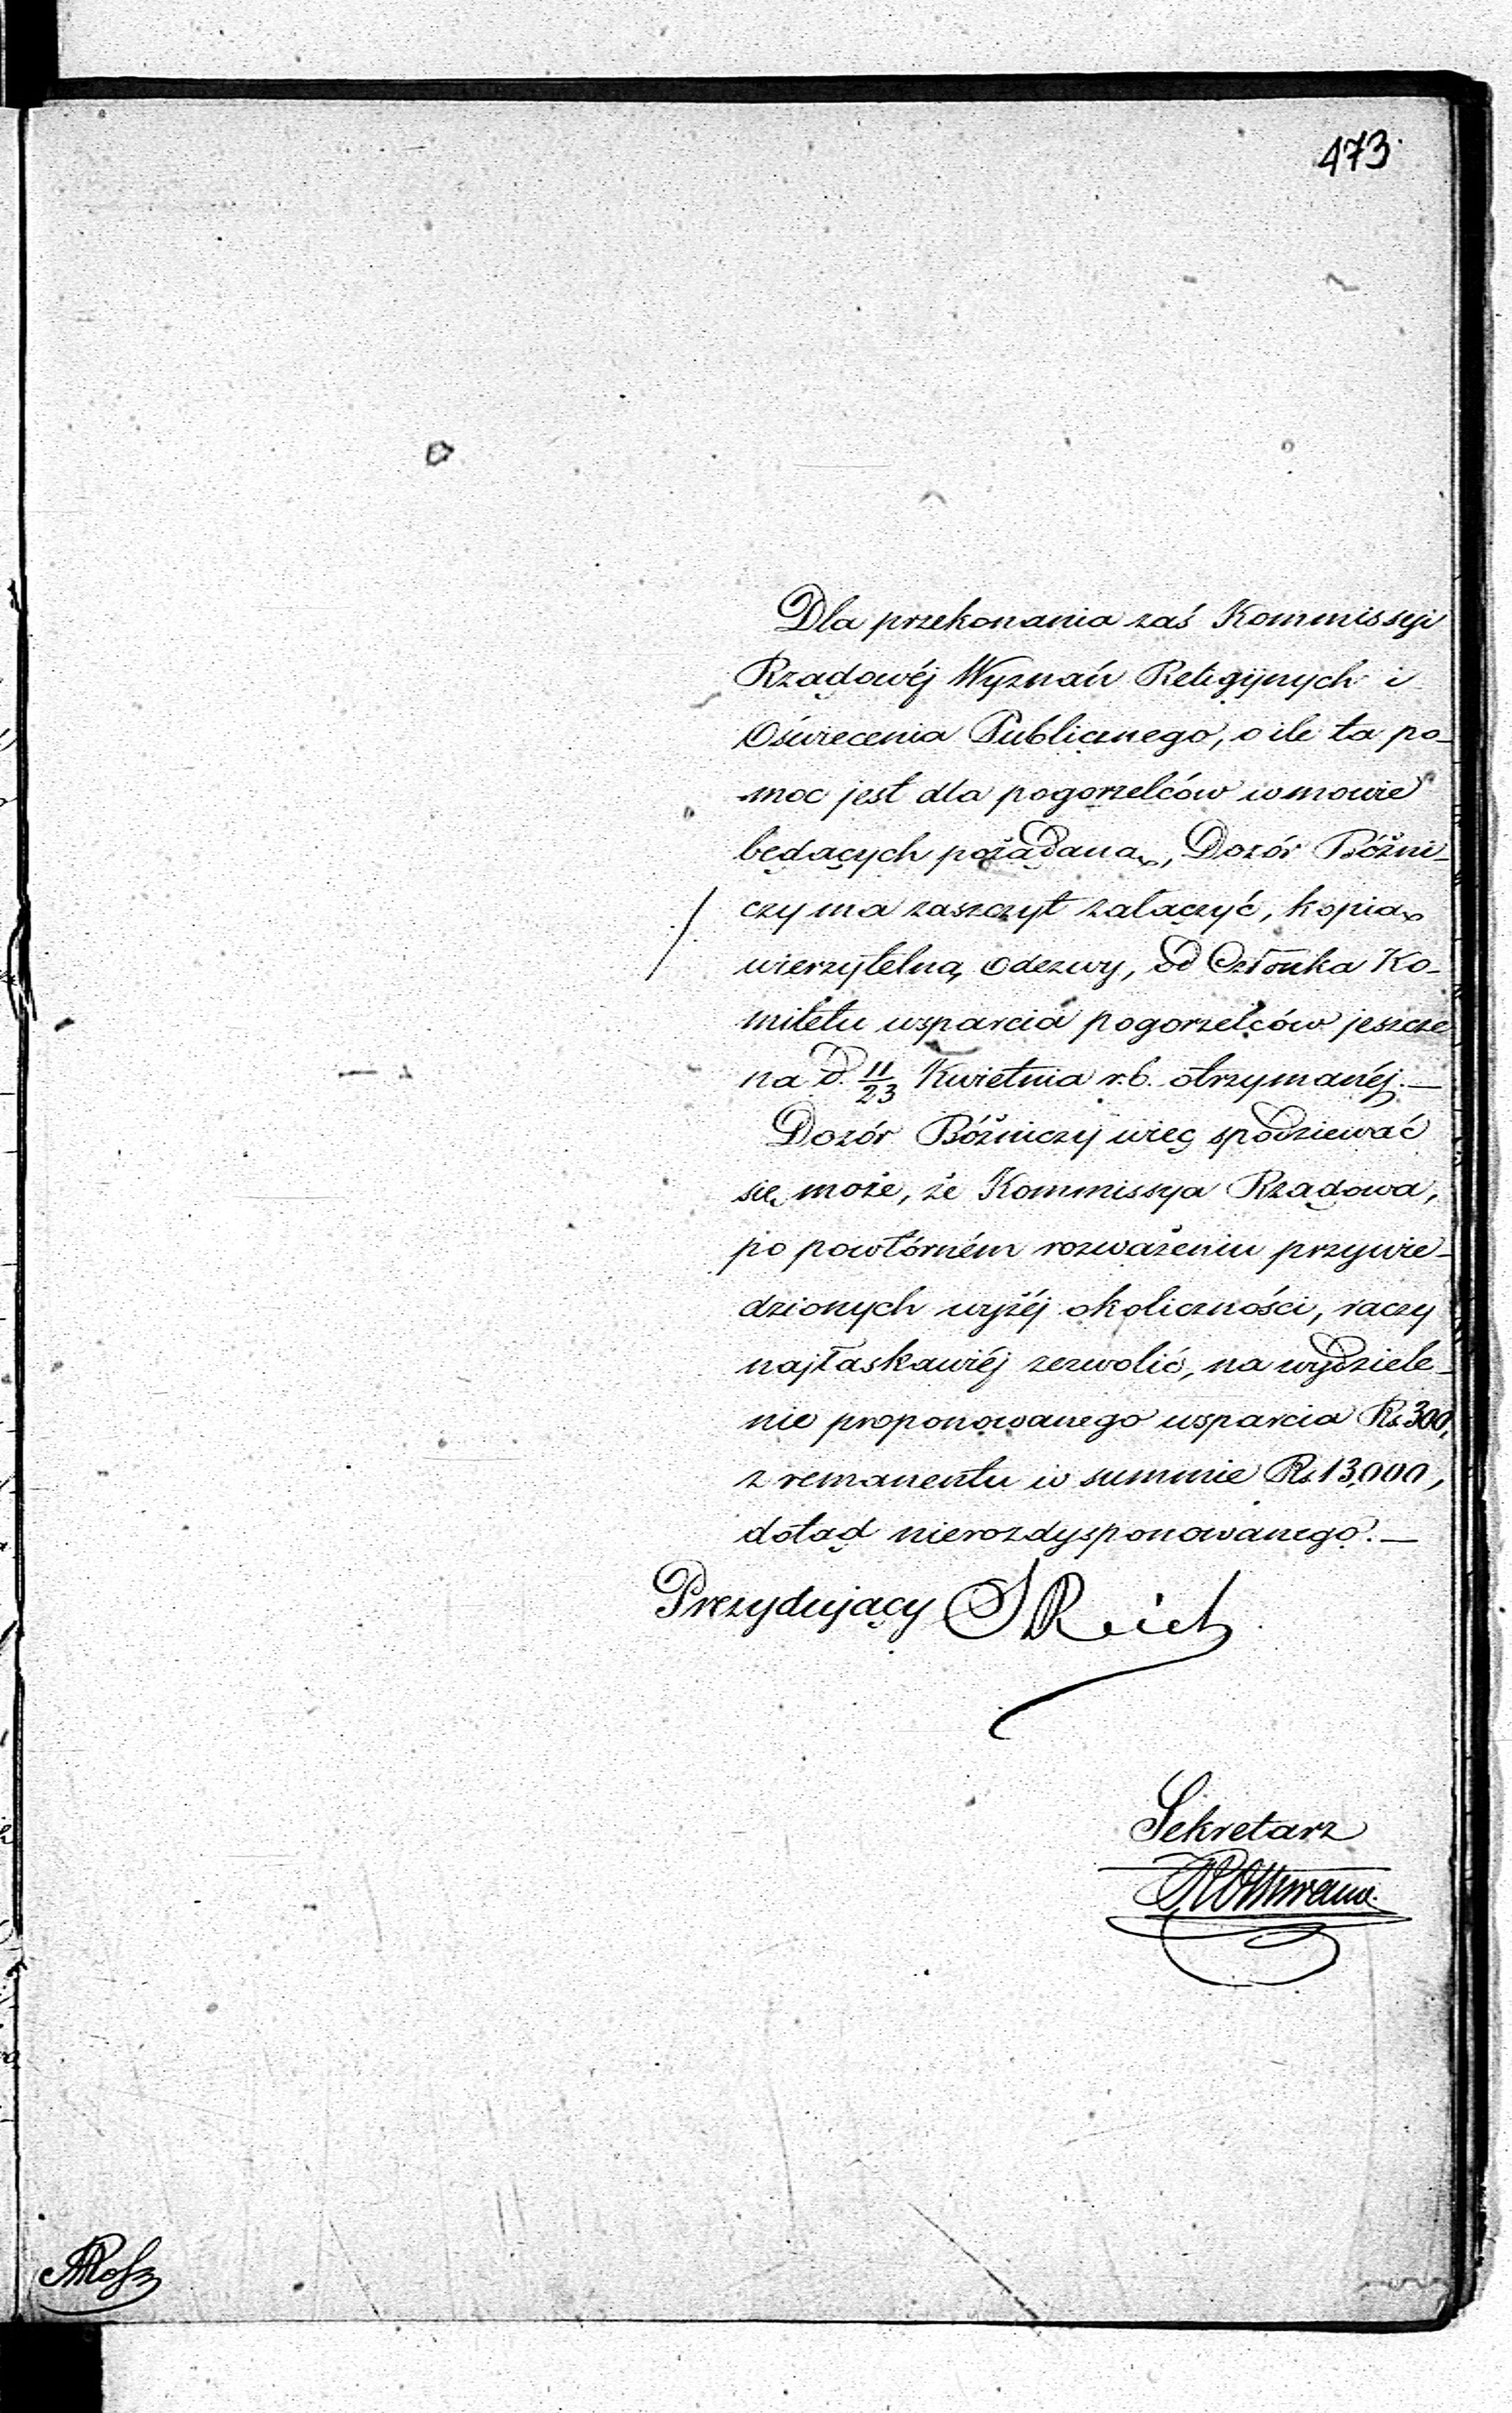 473
Dla przekonania zaś Kommissyi
Rządowéj Wyznań Religijnych i
Oświecenia Publicznego, o ile ta po-
moc jest dla pogorzelców w mowie
będących pożądaną, Dozór Bóżni-
czy ma zaszczyt załączyć, kopią
wierzytelną odezwy, od Członka Ko-
mitetu wsparcia pogorzelców jeszcze
na d. 11/23 Kwietnia r. b. otrzymanéj.—
Dozór Bóżniczy więc spodziewać
się może, że Kommissya Rządowa,
po powtórném rozważeniu przywie-
dzionych wyżéj okoliczności, raczy
najłaskawiéj zezwolić, na wydziele-
nie proponowanego wsparcia Rs. 300,
z remanentu w summie Rs. 13,000,
dotąd nierozdysponowanego.—
Prezydujący S Reich
Sekretarz